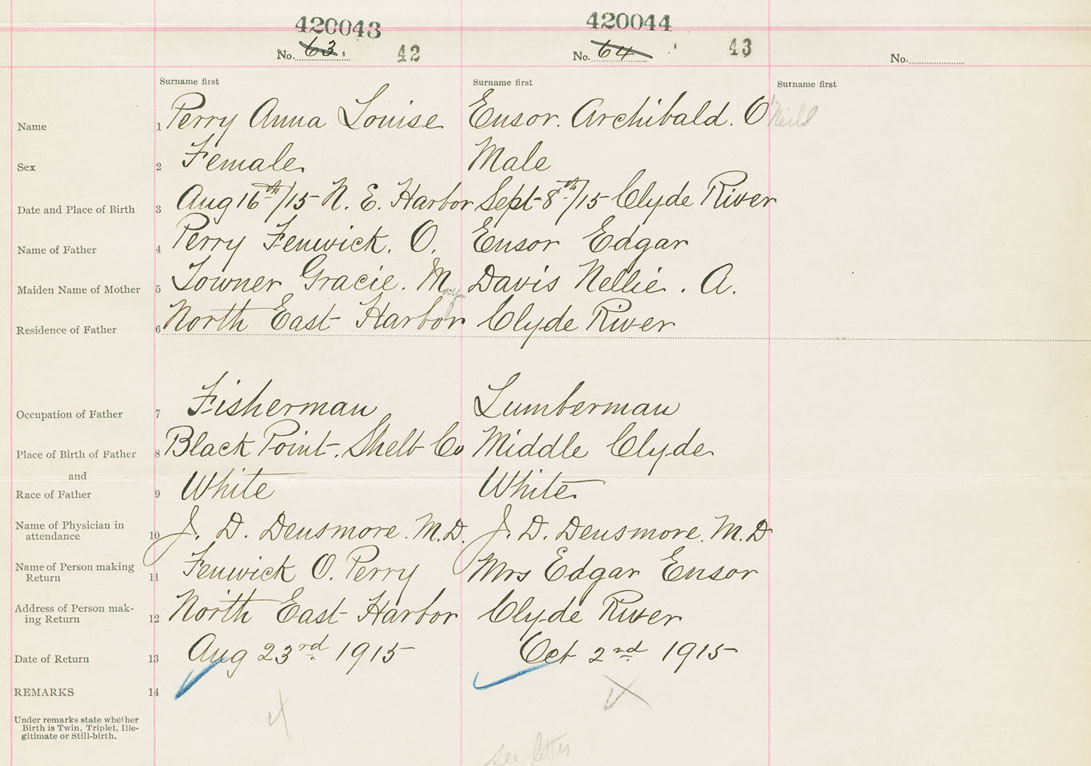 420043 420044
No. 63. 42 No. 64 43 No.
Surname first Surname first Surname first
Name 1 Perry Anna Louise Ensor. Archibald. O'Neill
Sex 2 Female Male
Date and Place of Birth 3 Aug 16th/15 N. E. Harbor Sept 8th/15 Clyde River
Name of Father 4 Perry Fenwick. O. Ensor Edgar
Maiden Name of Mother 5 Towner Gracie. May Davis Nellie. A.
Residence of Father 6 North East Harbor Clyde River
Occupation of Father 7 Fisherman Lumberman
Place of Birth of Father 8 Black Point. Shelb Co Middle Clyde
and
Race of Father 9 White White
Name of Physician in
attendance 10 J. D. Densmore. M.D. J. D. Densmore. M.D
Name of Person making
Return 11 Fenwick O. Perry Mrs Edgar Ensor
Address of Person mak-
ing Return 12 North East Harbor Clyde River
Date of Return 13 Aug 23rd 1915 Oct 2nd 1915
REMARKS 14
Under remarks state whether
Birth is Twin, Triplet, Ille-
gitimate or Still-birth.
see letter